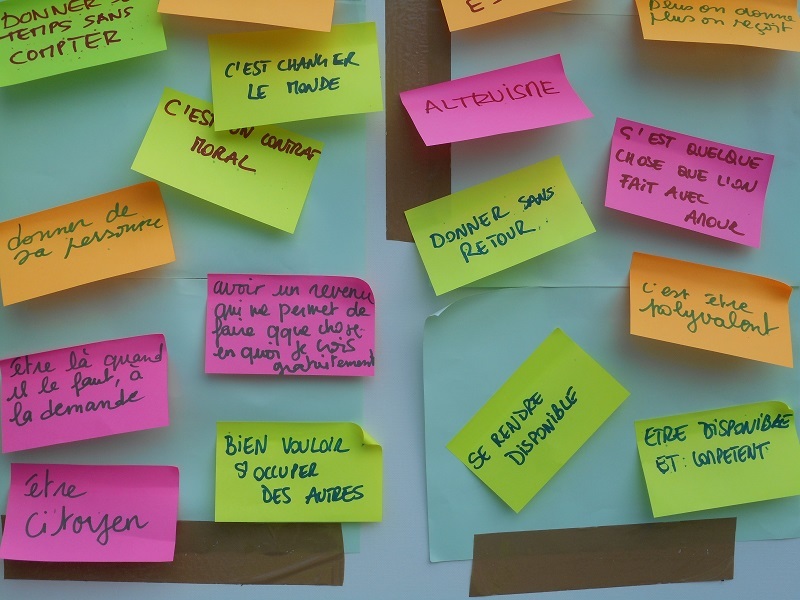 DONNER SON
TEMPS SANS
COMPTER
C'EST CHANGER
LE MONDE
C'EST UN CONTRAT
MORAL
donner de
sa ressource
avoir un revenu
qui me permet de
faire qque chose
en quoi je crois
gratuitement
être là quand
il le faut, à
la demande
BIEN VOULOIR
S'OCCUPER
DES AUTRES
être
citoyen
plus on donne
plus on reçoit
ALTRUISME
C'EST QUELQUE
CHOSE QUE L'ON
FAIT AVEC
AMOUR
DONNER SANS
RETOUR..
c'est être
polyvalent
SE RENDRE
DISPONIBLE
ETRE DISPONIBLE
ET: COMPETENT